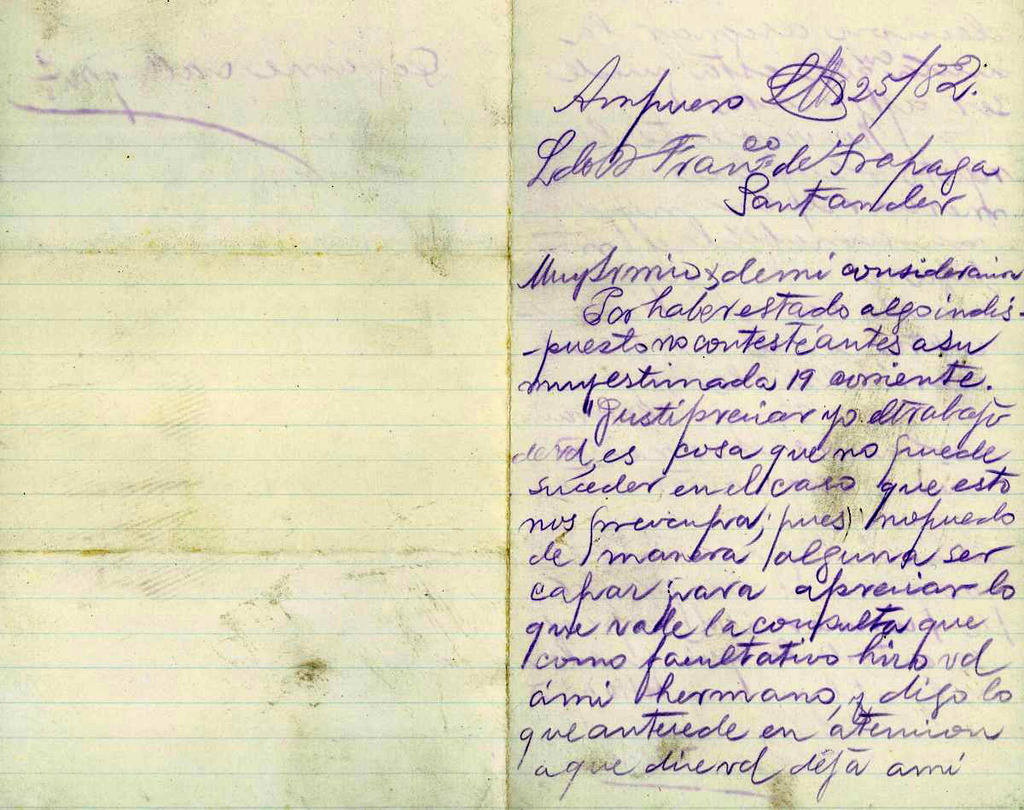 Ampuero 25/82.
Ldo D Franco de Trapaga
Santander
Muy Sr mio y de mi consideracion
Por haber estado algo indis-
-puesto no contesté antes a su
muy estimada 19 corriente.
"Justipreciar yo el trabajo
de vd, es cosa que no puede
suceder en el caso que esto
nos preocupa, pues no puedo
de manera alguna ser
capaz para apreciar lo
que vale la consulta que
como facultativo hizo vd
ámi hermano, y digo lo
que antecede en atencion
a que dice vd déja ami